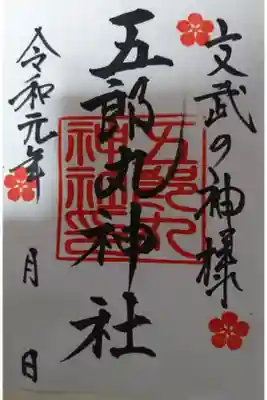 文武の神様
五郎丸神社
五郎丸
神社印
令和元年
月 日